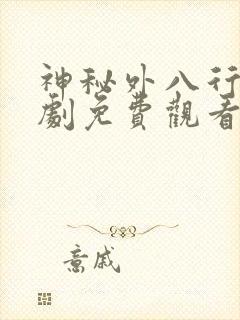 神秘外八行
劇免費觀看
意戚